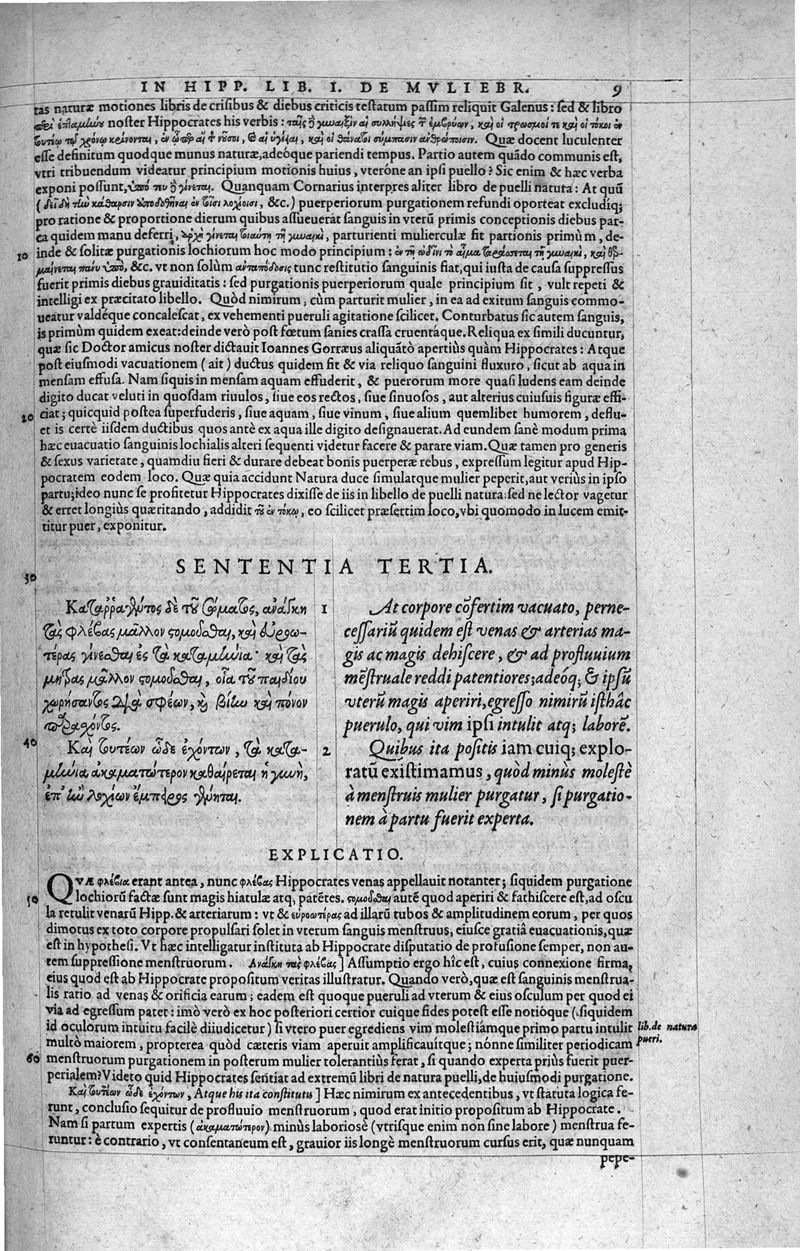 IN HIPP. LIB. I. DE MVLIEBR. 9
tas naturæ motiones libris de crisibus & diebus criticis testatum passim reliquit Galenus: sed & libro
noster Hippocrates his verbis:
Quæ docent luculenter
esse definitum quodque munus naturæ, adeóque pariendi tempus. Partio autem quãdo communis est,
vtri tribuendum videatur principium motionis huius, vteróne an ipsi puello? Sic enim & hæc verba
exponi possunt, Quanquam Cornarius interpres aliter libro de puelli natura: At quũ
( &c.) puerperiorum purgationem refundi oporteat excludiq;
pro ratione & proportione dierum quibus assueuerat sanguis in vterũ primis conceptionis diebus par-
ca quidem manu deferri, parturienti mulierculæ fit partionis primùm, de-
10 inde & solitæ purgationis lochiorum hoc modo principium:
&c. vt non solùm tunc restitutio sanguinis fiat, qui iusta de causa suppressus
fuerit primis diebus grauiditatis: sed purgationis puerperiorum quale principium sit, vult repeti &
intelligi ex præcitato libello. Quòd nimirum, cùm parturit mulier, in ea ad exitum sanguis commo-
ueatur valdéque concalescat, ex vehementi pueruli agitatione scilicet. Conturbatus sic autem sanguis,
is primùm quidem exeat: deinde verò post fœtum sanies crassa cruentáque. Reliqua ex simili ducuntur,
quæ sic Doctor amicus noster dictauit Ioannes Gorræus aliquãtò apertiùs quàm Hippocrates: Atque
post eiusmodi vacuationem (ait) ductus quidem fit & via reliquo sanguini fluxuro, sicut ab aqua in
mensam effusa. Nam siquis in mensam aquam effuderit, & puerorum more quasi ludens eam deinde
digito ducat veluti in quosdam riuulos, siue eos rectos, siue sinuosos, aut alterius cuiusuis figuræ effi-
20 ciat; quicquid postea superfuderis, siue aquam, siue vinum, siue alium quemlibet humorem, deflu-
et is certè iisdem ductibus quos antè ex aqua ille digito designauerat. Ad eundem sanè modum prima
hæc euacuatio sanguinis lochialis alteri sequenti videtur facere & parare viam. Quæ tamen pro generis
& sexus varietate, quamdiu fieri & durare debeat bonis puerperæ rebus, expressum legitur apud Hip-
pocratem eodem loco. Quæ quia accidunt Natura duce simulatque mulier peperit, aut veriùs in ipso
partu; ideo nunc se profitetur Hippocrates dixisse de iis in libello de puelli natura: sed ne lector vagetur
& erret longiùs quæritando, addidit eo scilicet præsertim loco, vbi quomodo in lucem emit-
titur puer, exponitur.
30 SENTENTIA TERTIA.
Καταρραγέντος δὲ τοῦ σώματος, ἀνάγκη
τὰς φλέβας μᾶλλον στομοῦσθαι, καὶ εὐροω-
τέρας γίνεσθαι ἐς τὰ καταμήνια· καὶ τὰς
μήτρας μᾶλλον στομοῦσθαι, οἷα τοῦ παιδίου
χωρήσαντος διὰ σφέων, καὶ βίην καὶ πόνον
παρασχόντος.
40 Καὶ τουτέων ὧδε ἐχόντων, τὰ κατα-
μήνια ἀκοπωτότερον καθαίρεται ἡ γυνὴ,
1 At corpore cõfertim vacuato, perne-
cessariũ quidem est venas & arterias ma-
gis ac magis dehiscere, & ad profluuium
mẽstruale reddi patentiores; adeóq; & ipsũ
vterũ magis aperiri, egresso nimirũ isthâc
puerulo, qui vim ipsi intulit atq; laborẽ.
2 Quibus ita positis iam cuiq; explo-
ratũ existimamus, quòd minus molestè
à menstruis mulier purgatur, si purgatio-
nem à partu fuerit experta.
EXPLICATIO.
QVÆ φλέβια erant antea, nunc φλέβας Hippocrates venas appellauit notanter; siquidem purgatione
50 lochiorũ factæ sunt magis hiatulæ atq, patẽtes. autẽ quod aperiri & fathiscere est, ad oscu
la retulit venarũ Hipp. & arteriarum: vt & εὐροωτέρας ad illarũ tubos & amplitudinem eorum, per quos
dimotus ex toto corpore propulsari solet in vterum sanguis menstruus, eiusce gratiâ euacuationis, quæ
est in hypothesi. Vt hæc intelligatur instituta ab Hippocrate disputatio de profusione semper, non au-
tem suppressione menstruorum. Ἀνάγκη τὰς φλέβας ] Assumptio ergo hîc est, cuius connexione firma,
eius quod est ab Hippocrate propositum veritas illustratur. Quando verò, quæ est sanguinis menstrua-
lis ratio ad venas & orificia earum; eadem est quoque pueruli ad vterum & eius osculum per quod ei
via ad egressum patet: imò verò ex hoc posteriori certior cuique fides potest esse notióque (siquidem
id oculorum intuitu facilè diiudicetur) si vtero puer egrediens vim molestiámque primo partu intulit
lib. de natura
pueri.
multò maiorem, propterea quòd cæteris viam aperuit amplificauítque; nónne similiter periodicam
60 menstruorum purgationem in posterum mulier tolerantiùs ferat, si quando experta priùs fuerit puer-
perialem? Videto quid Hippocrates sentiat ad extremũ libri de natura puelli, de huiusmodi purgatione.
Καὶ τουτέων ὧδε ἐχόντων, Atque his ita constitutis ] Hæc nimirum ex antecedentibus, vt statuta logica fe-
runt, conclusio sequitur de profluuio menstruorum, quod erat initio propositum ab Hippocrate.
Nam si partum expertis ( ) minùs laboriosè (vtrisque enim non sine labore) menstrua fe-
runtur: è contrario, vt consentaneum est, grauior iis longè menstruorum cursus erit, quæ nunquam
pepe-